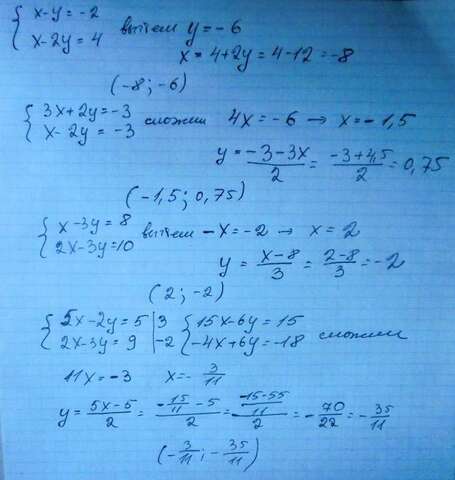 { x-y = -2
x-2y = 4 вычтем y = -6
x = 4+2y = 4-12 = -8
(-8; -6)
{ 3x+2y = -3
x-2y = -3 сложим 4x = -6 → x = -1,5
y = \frac{-3-3x}{2} = \frac{-3+4,5}{2} = 0,75
(-1,5; 0,75)
{ x-3y = 8
2x-3y = 10 вычтем -x = -2 → x = 2
y = \frac{x-8}{3} = \frac{2-8}{3} = -2
(2; -2)
{ 5x-2y = 5 | 3 { 15x-6y = 15
2x-3y = 9 | -2 -4x+6y = -18 сложим
11x = -3 x = -\frac{3}{11}
y = \frac{5x-5}{2} = \frac{-\frac{15}{11}-5}{2} = \frac{\frac{-15-55}{11}}{2} = -\frac{70}{22} = -\frac{35}{11}
(-\frac{3}{11}; -\frac{35}{11})